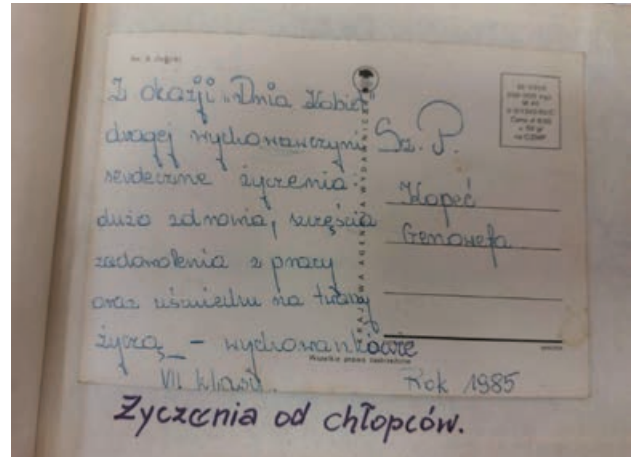 Z okazji „Dnia Kobiet
drogiej wychowawczyni
serdeczne życzenia:
dużo zdrowia, szczęścia
zadowolenia z pracy
oraz uśmiechu na twarzy
życzą – wychowankowie
VII klasy.
Sz. P.
Kopeć
Genowefa
Rok 1985
KRAJOWA AGENCJA WYDAWNICZA
Wszelkie prawa zastrzeżone
Życzenia od chłopców.